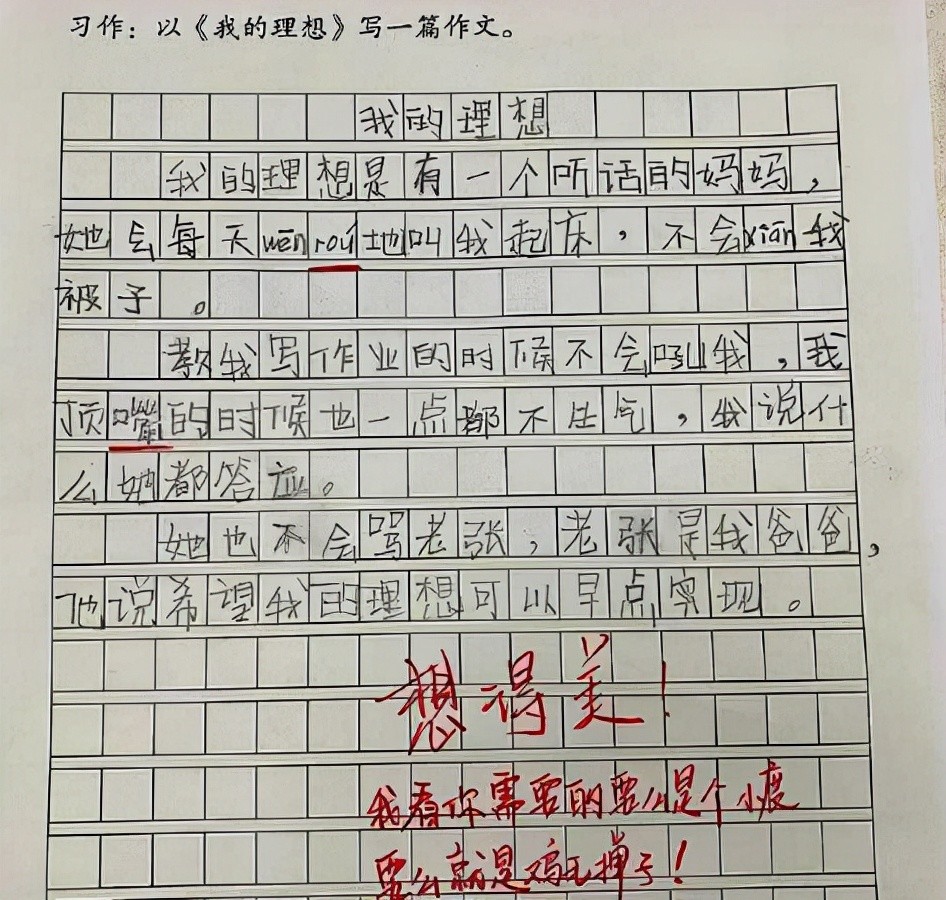 习作：以《我的理想》写一篇作文。
我的理想
我的理想是有一个听话的妈妈，
她会每天wēn roú地叫我起床，不会xiān我
被子。
教我写作业的时候不会吼我，我
顶嘴的时候也一点都不生气，我说什
么她都答应。
她也不会骂老张，老张是我爸爸，
他说希望我的理想可以早点实现。
想得美！
我看你需要的要么是个小
要么就是鸡毛掸子！